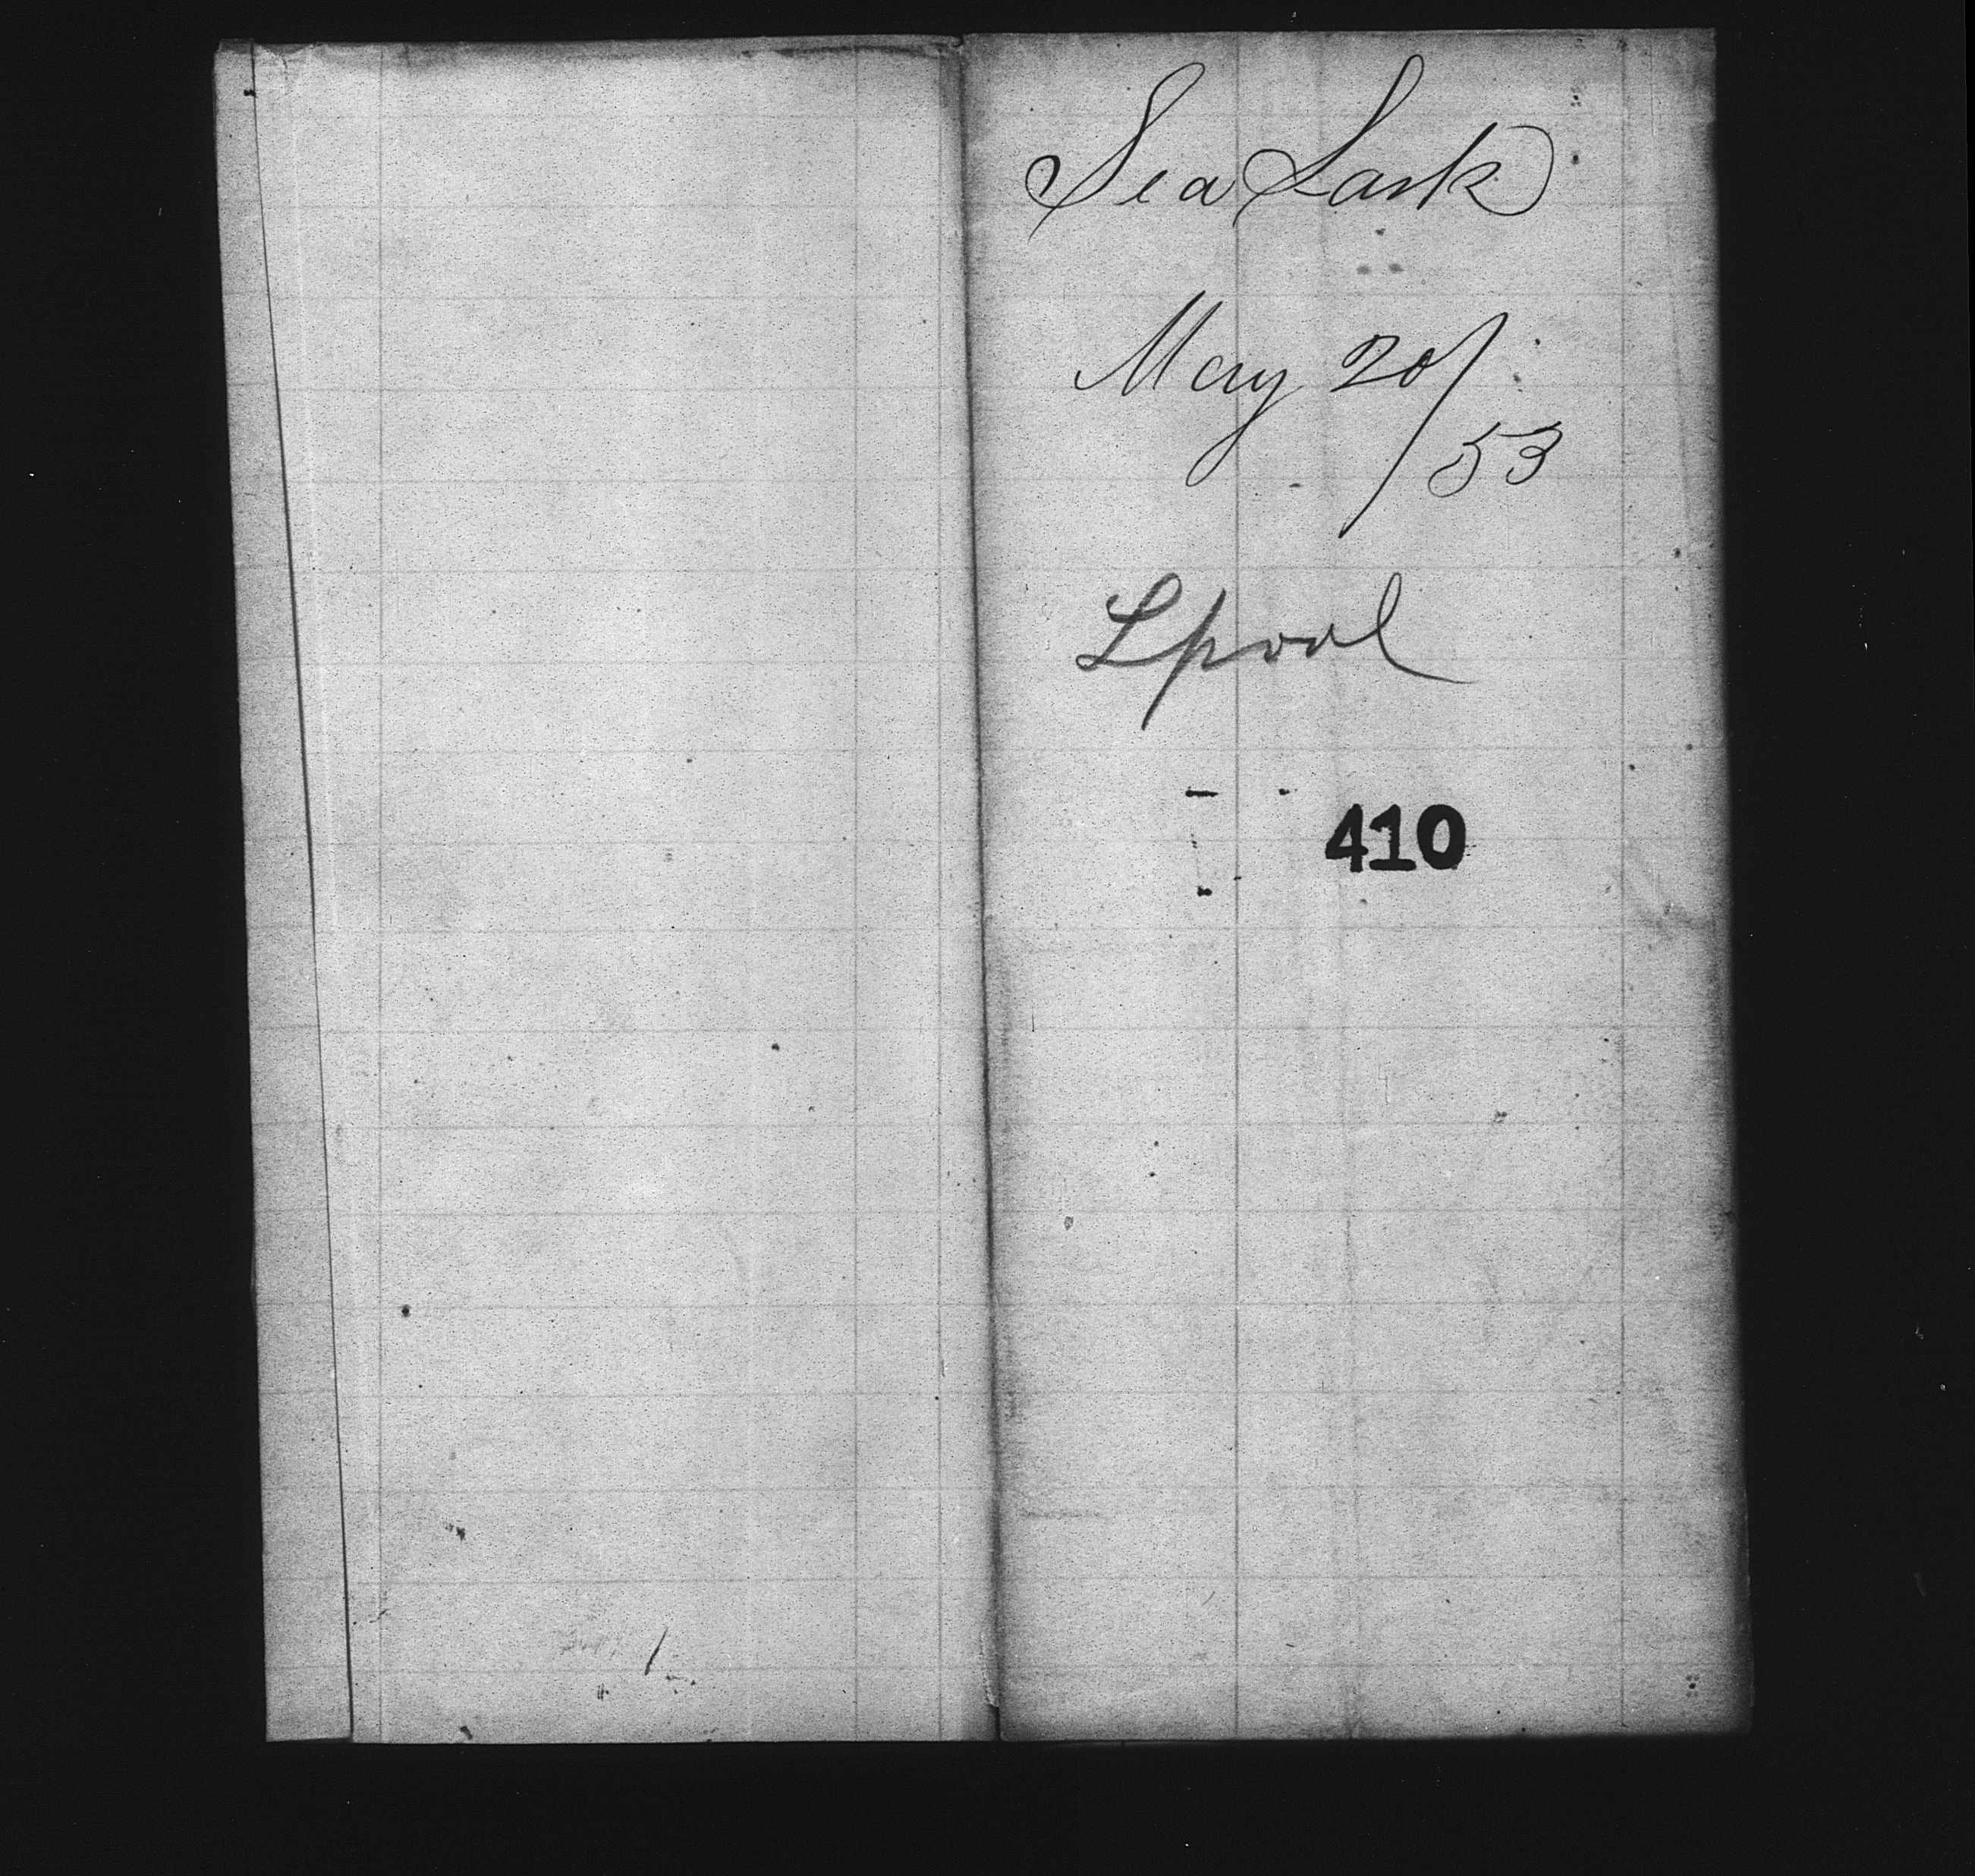 Sea Lark
May 20/
53
Lpool
410